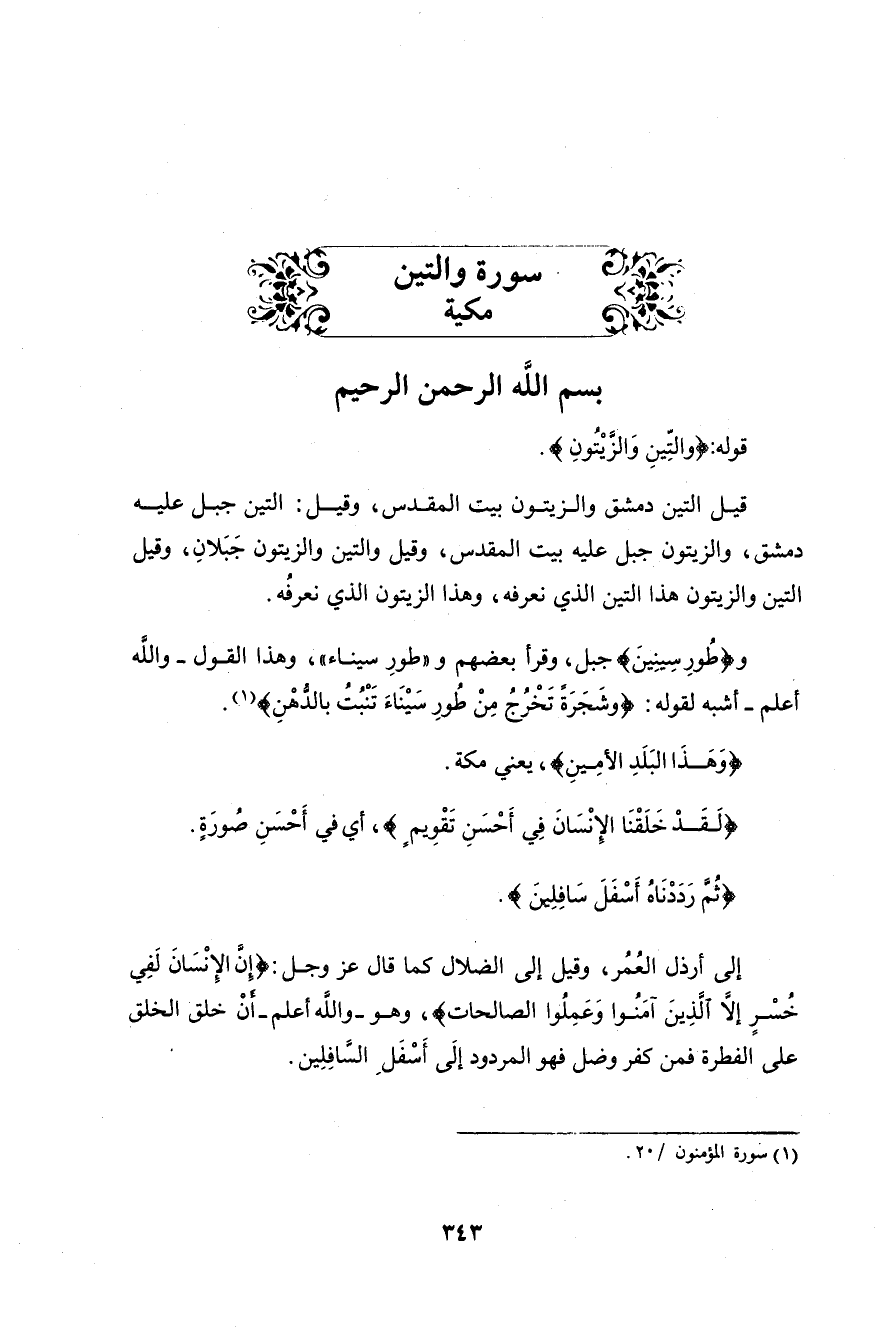 سورة والتين
مكية
بسم اللَّه الرحمن الرحيم
قوله:﴿والتِّينِ وَالزَّيْتُونِ ﴾.
قيل التين دمشق والزيتون بيت المقدس، وقيل: التين جبل عليه
دمشق، والزيتون جبل عليه بيت المقدس، وقيل والتين والزيتون جَبَلانِ، وقيل
التين والزيتون هذا التين الذي نعرفه، وهذا الزيتون الذي نعرفُه.
و﴿طُورِ سِينِينَ﴾ جبل، وقرأ بعضهم و «طورِ سيناء»، وهذا القول ـ واللَّه
أعلم ـ أشبه لقوله: ﴿وشَجَرَةً تَخْرُجُ مِنْ طُورِ سَيْنَاءَ تَنْبُتُ بالدُّهْنِ﴾(١).
﴿وَهَذَا البَلَدِ الأمِينِ﴾، يعني مكة.
﴿لَقَدْ خَلَقْنَا الإنْسَانَ فِي أَحْسَنِ تَقْوِيمٍ ﴾، أي في أَحْسَنِ صُورَةٍ.
﴿ثُمَّ رَدَدْنَاهُ أَسْفَلَ سَافِلِينَ ﴾.
إلى أرذل العُمُر، وقيل إلى الضلال كما قال عز وجل:﴿إنَّ الإنْسَانَ لَفِي
خُسْرٍ إلاَّ ٱلَّذِينَ آمَنُوا وَعَمِلُوا الصالحات﴾، وهو ـ واللَّه أعلم ـ أَنْ خلق الخلق
على الفطرة فمن كفر وضل فهو المردود إلَى أَسْفَلِ السَّافِلِين.
(١) سورة المؤمنون / ٢٠.
٣٤٣